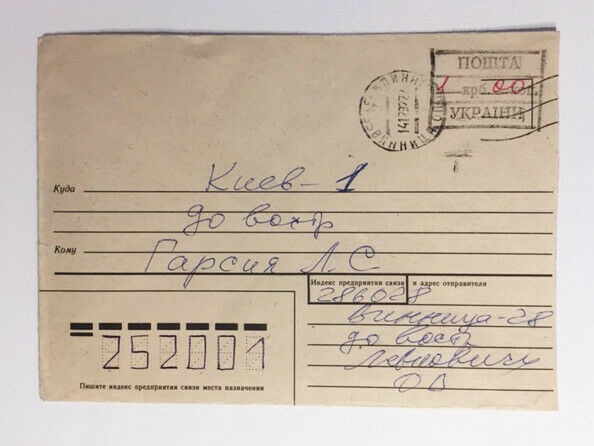 ПОШТА
1 крб. 00
УКРАЇНИ
ВИННИЦА
Куда Киев-1
до востр
Кому Гарсия Л.С.
Индекс предприятия связи и адрес отправителя
286028
Винница-28
до востр
О В
252001
Пишите индекс предприятия связи места назначения